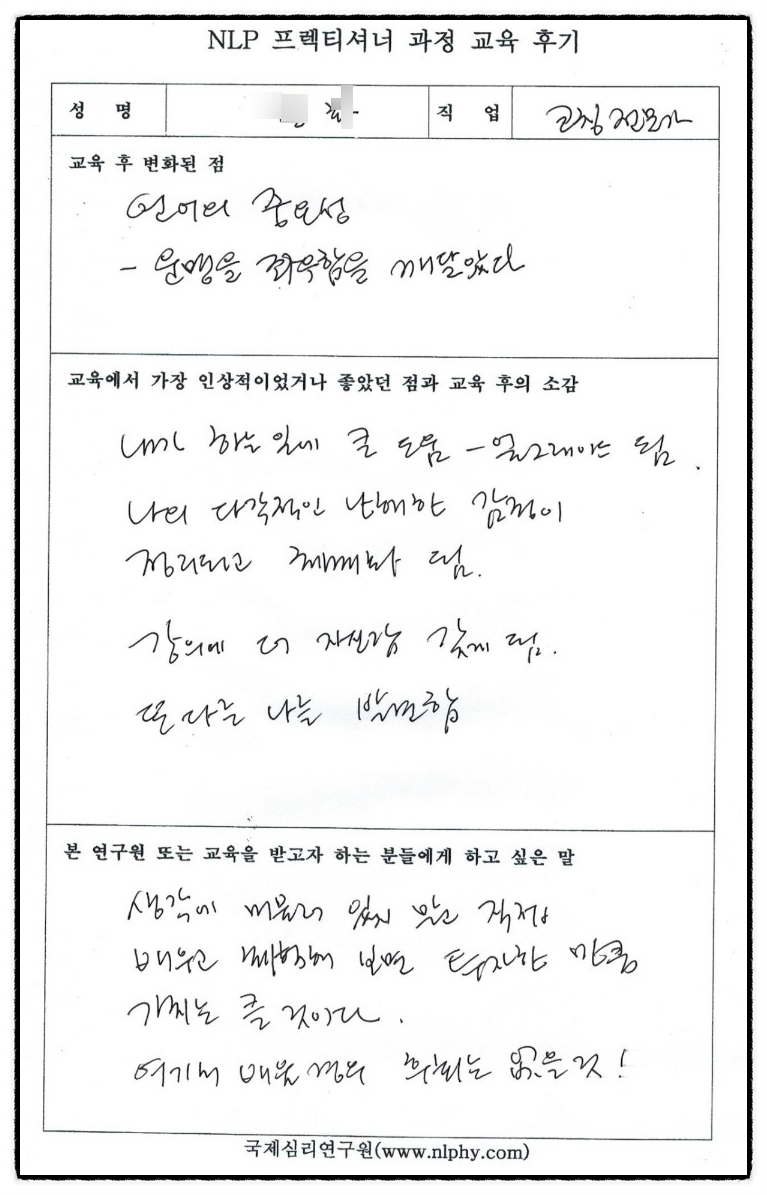 NLP 프렉티셔너 과정 교육 후기
성 명 직 업 코칭 전문가
교육 후 변화된 점
언어의 중요성
- 운명을 좌우함을 깨달았다
교육에서 가장 인상적이었거나 좋았던 점과 교육 후의 소감
내가 하는 일에 큰 도움 - 업그레이드 됨.
나의 다각적인 난해한 감정이
정리되고 재배치 됨.
강의에 더 자신감 갖게 됨.
또 다른 나를 발견함
본 연구원 또는 교육을 받고자 하는 분들에게 하고 싶은 말
생각에 머물러 있지 말고 직접
배우고 체험해 보면 투자한 만큼
가치는 클 것이다.
여기서 배울 경우 후회는 없을 것!
국제심리연구원(www.nlphy.com)